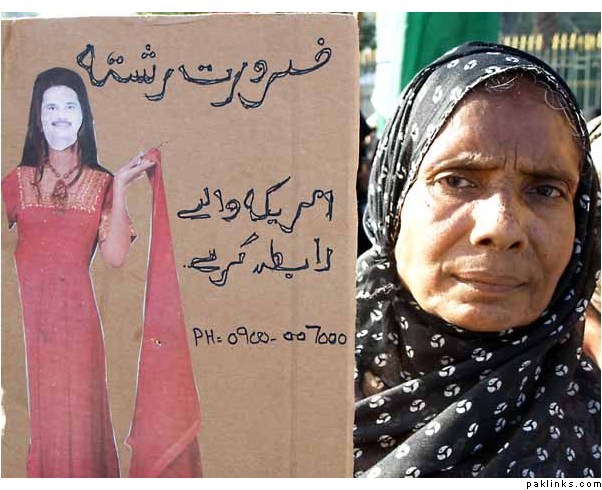 ضرورت رشتہ
امریکہ والے
رابطہ کرے..
PH= 0900-007000
paklinks.com